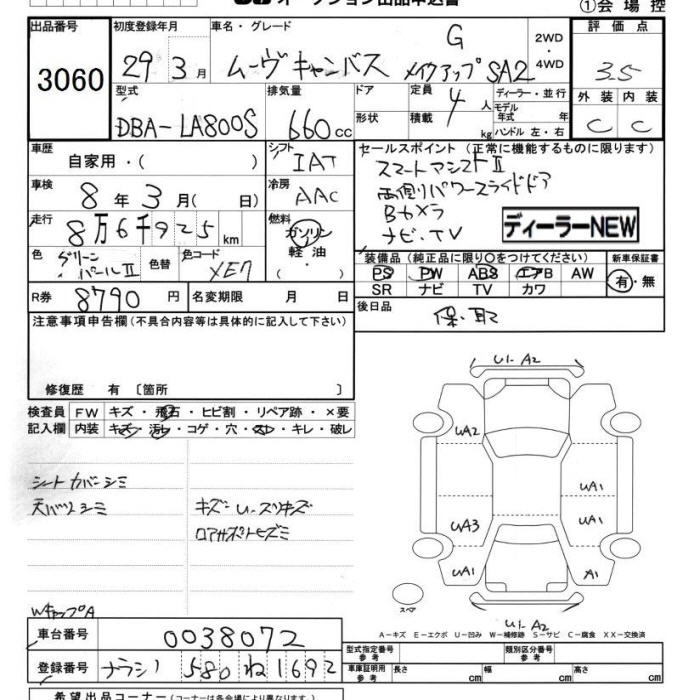 オークション出品申込書
①会場控
出品番号
3060
初度登録年月
29年 3月
車名・グレード
ムーヴキャンバス G メイクアップSA2
2WD
・
4WD
評価点
3.5
外装 内装
C C
型式
DBA-LA800S
排気量
660cc
ドア
形状
定員 4人
積載 kg
ディーラー・並行
モデル年式 年
ハンドル 左・右
車歴
自家用・( )
シフト
IAT
車検
8年3月( 日)
冷房
AAC
走行
8万6千925km
燃料
ガソリン
軽油・
( )
色
グリーンパールII
色替
色コード
XE7
R券
8790円
名変期限 月 日
セールスポイント(正常に機能するものに限ります)
スマートアシストII
両側パワースライドドア
Bカメラ
ナビ・TV
ディーラーNEW
装備品(純正品に限り○をつけてください)
PS PW ABS エアB AW
SR ナビ TV カワ
新車保証書
有・無
後日品
保・取
注意事項申告欄(不具合内容等は具体的に記入して下さい)
修復歴 有 〔箇所 〕
検査員記入欄
FW キズ・飛石・ヒビ割・リペア跡・×要
内装 キズ・汚レ・コゲ・穴・スレ・キレ・破レ
シートカバーシミ
天バリシミ
キズ-U-スリキズ
ロアサポートヒズミ
WキャップA
U1-A2
UA2
UA1
UA1
UA3
UA1
A1
スペア
U1-A2
A-キズ E-エクボ U-凹み W-補修跡 S-サビ C-腐食 XX-交換済
車台番号
0038072
登録番号
ナラシ1 580 ね 1692
型式指定番号
類別区分番号
車庫証明用参考
長さ cm
幅 cm
高さ cm
希望出品コーナー(コーナーは各会場により異なります。)